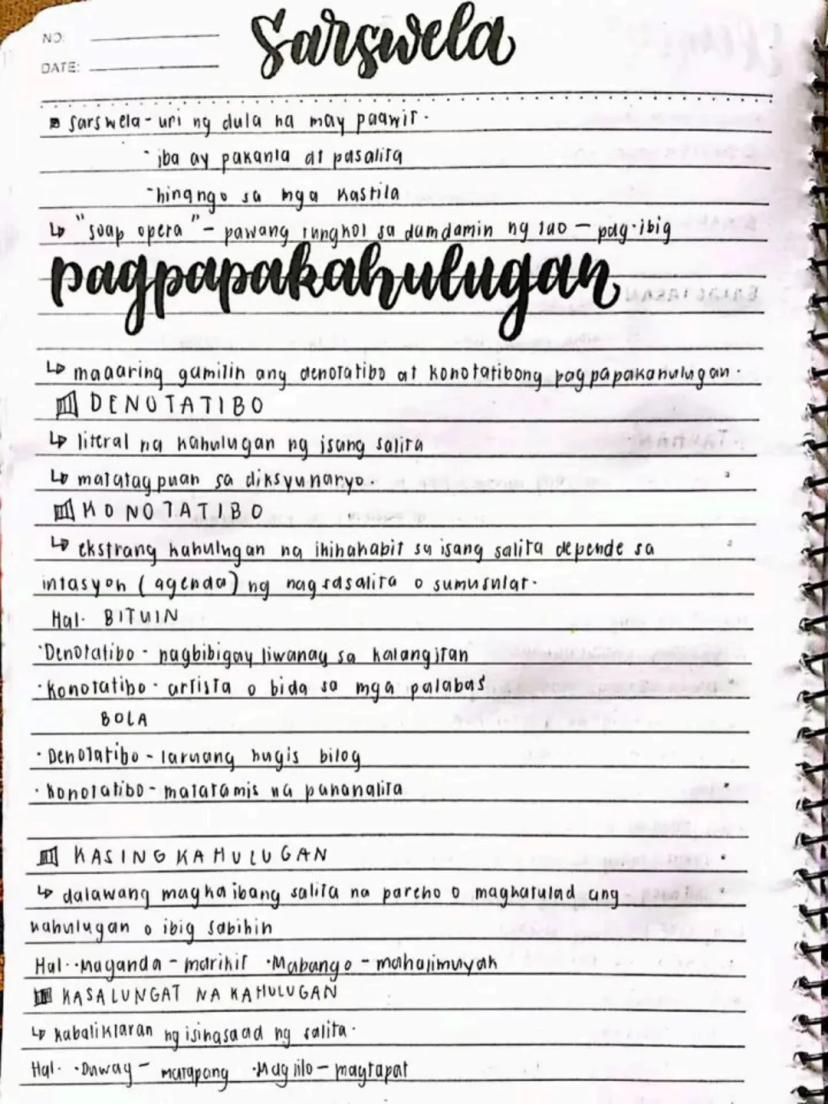 NO:
DATE:
Sarswela
sarswela - uri ng dula na may paawit.
- iba ay pakanta at pasalita
- hinango sa mga kastila
↳ "soap opera" - pawang tungkol sa damdamin ng tao - pag-ibig
pagpapakahulugan
↳ maaaring gamitin ang denotatibo at konotatibong pagpapakahulugan.
DENOTATIBO
↳ literal na kahulugan ng isang salita
↳ matatagpuan sa diksyunaryo.
KONOTATIBO
↳ ekstrang kahulugan na ikinakabit sa isang salita depende sa
intasyon (agenda) ng nagsasalita o sumusulat.
Hal. BITUIN
· Denotatibo - nagbibigay liwanag sa kalangitan
· Konotatibo - artista o bida sa mga palabas
BOLA
· Denotatibo - laruang hugis bilog
· Konotatibo - matatamis na pananalita
KASINGKAHULUGAN
↳ dalawang magkaibang salita na pareho o magkatulad ang
kahulugan o ibig sabihin
Hal. · Maganda - marikit · Mabango - mahalimuyak
KASALUNGAT NA KAHULUGAN
↳ kabaliktaran ng isinasaad ng salita.
Hal. · Duwag - matapang · Maglilo - magtapat